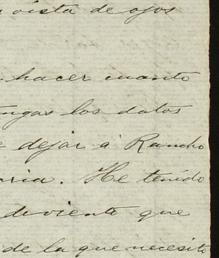 vista de ojos
hacer cuanto
tengas los datos
dejar á Rancho
He tenido
que
de la que necesito